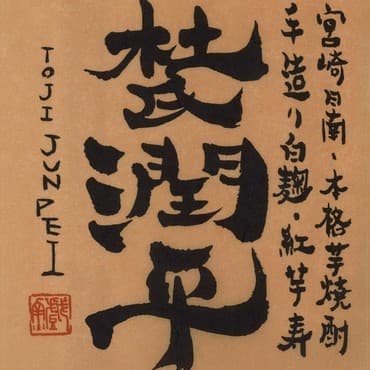 宮崎日南・本格芋焼酎
手造り白麹・紅芋寿
杜氏潤平
TOJI JUNPEI